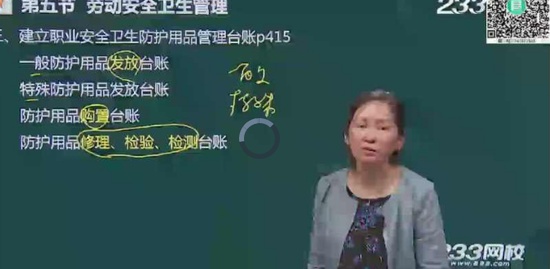 第五节 劳动安全卫生管理
三、建立职业安全卫生防护用品管理台账p415
一般防护用品发放台账
特殊防护用品发放台账
防护用品购置台账
防护用品修理、检验、检测台账
233网校